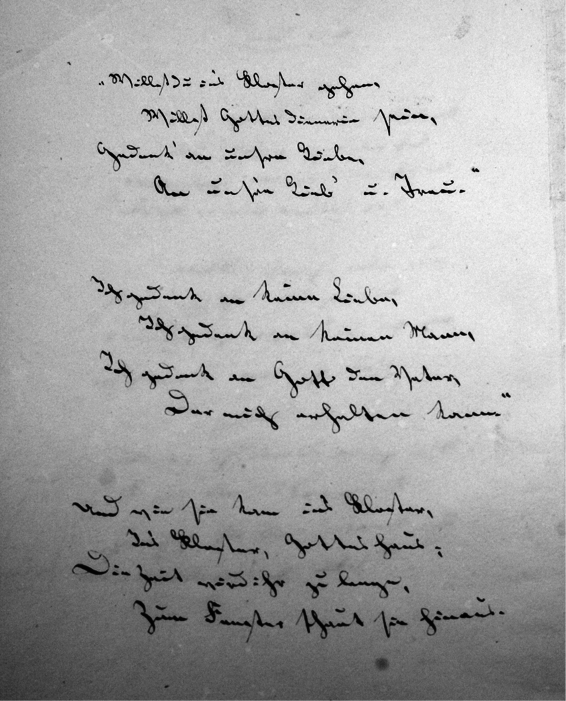 „Willst du ins Kloster gehen,
Willst Gottes Dienerin sein,
Gedenk' an unsre Liebe,
An unsre Lieb' u. Treu."
Ich gedenk an keine Liebe,
Ich gedenk an keinen Mann,
Ich gedenk an Gott den Vater,
Der mich erhalten kann"
Und wie sie kam ins Kloster,
Ins Kloster, Gottes Haus;
Die Zeit wird ihr zu lange,
Zum Fenster schaut sie hinaus.